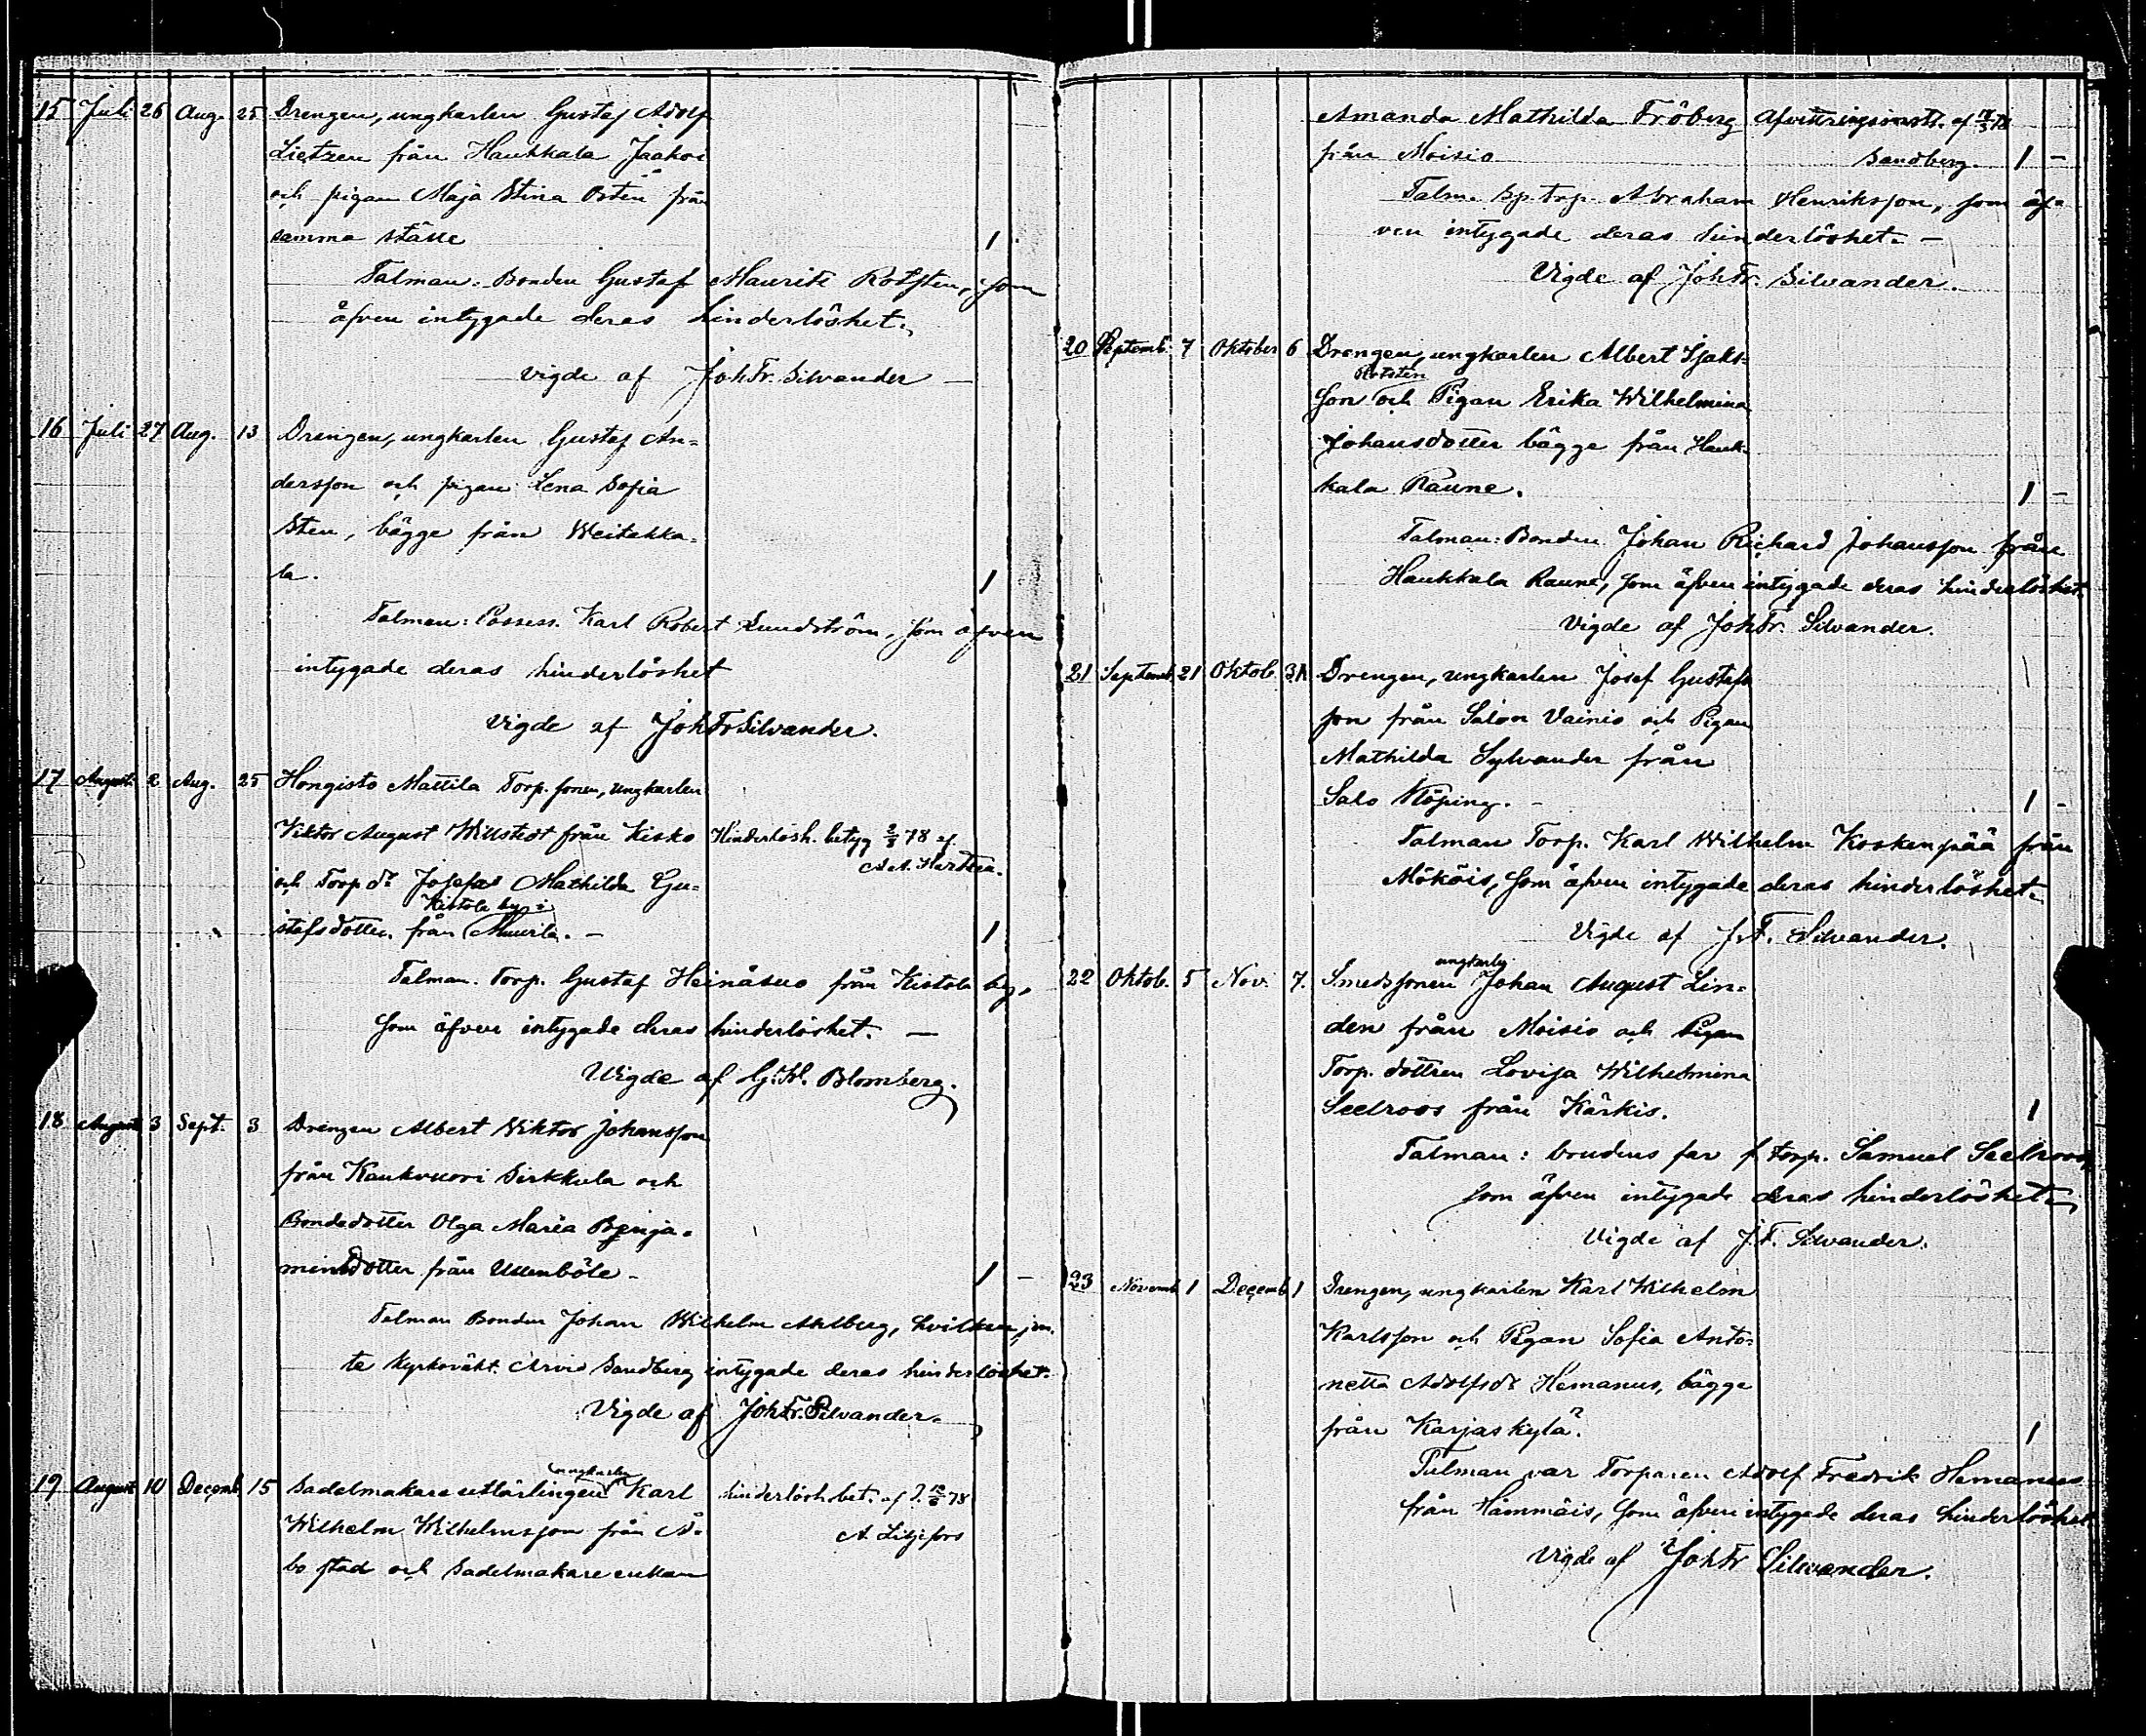 15 Juli 26 Aug. 25 Drengen, ungkarlen Gustaf Adolf
Lietzen från Haukkala Jaakoi
och pigan Maja Stina Östen från
samma ställe 1
Talman: Bonden Gustaf Maurits Rotsten, som
äfven intygade deras hinderlöshet.
Vigde af Joh Fr. Silvander —
16 Juli 27 Aug. 13 Drengen, ungkarlen Gustaf An=
dersson och pigan Lena Sofia
Sten, bägge från Weitakka=
la. 1
Talman: Possess. Karl Robert Lundström, som äfven
intygade deras hinderlöshet
Vigde af Joh Fr Silvander.
17 Augusti 2 Aug. 25 Hongisto Mattila Torp. sonen, ungkarlen
Viktor August Willstedt från Kisko Hinderlösh. betyg 2/8 78 af
och Torp dr Josefa Mathilda Gu= A. A.
Kistola by i
stafsdotter från Muurla. — 1
Talman. Torp. Gustaf Heinäsuo från Kistola by,
som äfven intygade deras hinderlöshet. —
Vigde af G. W. Blomberg.
18 Augusti 3 Sept. 3 Drengen Albert Viktor Johansson
från Kaukvuori Sirkkula och
Bondedotter Olga Maria Benja=
minsdotter från Ullenböle — 1 —
Talman Bonden Johan Wilhelm Ahlberg, hvilken jem=
te kyrkovākt. Arvid Sandberg intygade deras hinderlöshet.
Vigde af Joh Fr. Silvander.
19 August 10 Decemb 15 Sadelmakare utlärlingen ungkarlen Karl hinderlösh. bet. af 78
Wilhelm Wilhelmsson från Å= A. Liljefors
bo stad och Sadelmakare enkan
Amanda Mathilda Fröberg Afvittringsinstr. af 78
från Moisio Sandberg. 1 —
Talm. sp. torp. Abraham Henriksson, som äf=
ven intygade deras hinderlöshet. —
Vigde af Joh Fr. Silvander.
20 Septemb. 7 Oktober 6 Drengen, ungkarlen Albert Isaks=
Rotsten
son och Pigan Erika Wilhelmina
Johansdotter bägge från Hauk=
kala Raune. 1 —
Talman: Bonden Johan Richard Johansson från
Haukkala Raune, som äfven intygade deras hinderlöshet.
Vigde af Joh Fr. Silvander.
21 Septemb. 21 Oktob. 31 Drengen, ungkarlen Josef Gustafs
son från Salon Vainio och Pigan
Mathilda Sylvander från
Salo Köping. — 1 —
Talman Torp. Karl Wilhelm Koskenpää från
Mököis, som äfven intygade deras hinderlöshet.
Vigde af J. F. Silvander.
22 Oktob. 5 Nov. 7. Smedssonen ungkarlen Johan August Lin=
den från Moisio och Pigan
Torp. dottren Lovisa Wilhelmina
Seelroos från Kärkis. 1
Talman: brudens far f. torp. Samuel Seelroos,
som äfven intygade deras hinderlöshet.
Vigde af J. F. Silvander.
23 Novemb 1 Decemb 1 Drengen, ungkarlen Karl Wilhelm
Karlsson och Pigan Sofia Anto=
netta Adolfsdr Hemanus, bägge
från Karjaskylä. 1
Talman var Torparen Adolf Fredrik Hemanus
från Hämmäis, som äfven intygade deras hinderlöshet
Vigde af Joh Fr Silvander.